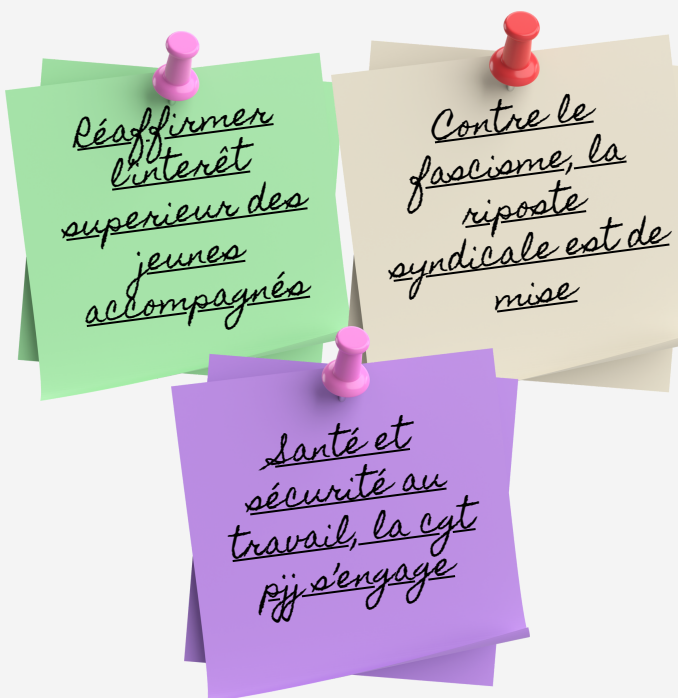 Réaffirmer
l'interêt
superieur des
jeunes
accompagnés
Contre le
fascisme, la
riposte
syndicale est de
mise
Santé et
sécurité au
travail, la cgt
pjj s'engage